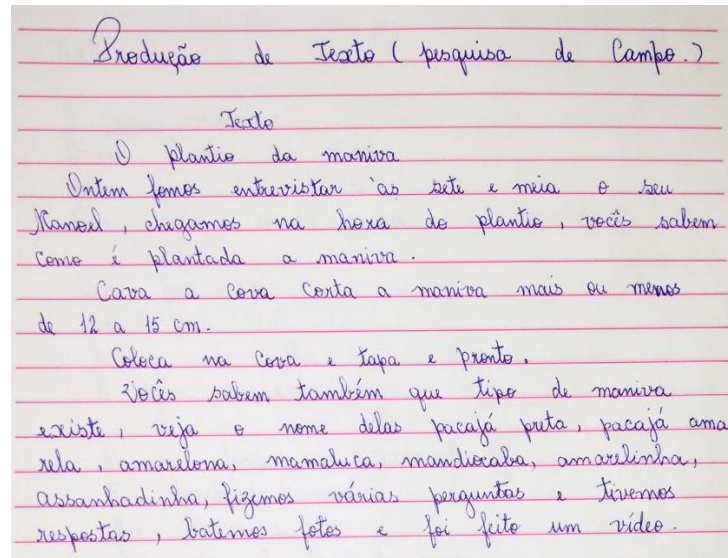 Produção de Texto ( pesquisa de Campo.)
Texto
O plantio da maniva
Ontem fomos entrevistar às sete e meia o seu
Manoel, chegamos na hora do plantio, vocês sabem
como é plantada a maniva.
Cava a cova corta a maniva mais ou menos
de 12 a 15 cm.
Coloca na cova e tapa e pronto.
Vocês sabem também que tipo de maniva
existe, veja o nome delas pacajá preta, pacajá ama
rela, amarelona, mamaluca, mandiocaba, amarelinha,
assanhadinha, fizemos várias perguntas e tivemos
respostas, batemos fotos e foi feito um vídeo.